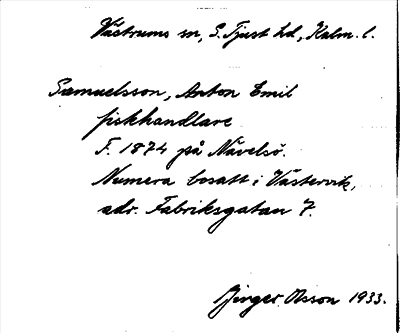 Västrums sn, S. Tjust hd, Kalm. l.
Samuelsson, Anton Emil
fiskhandlare
F. 1874 på Nävelsö.
Numera bosatt i Västervik,
adr. Fabriksgatan 7.
Inger Olsson 1933.